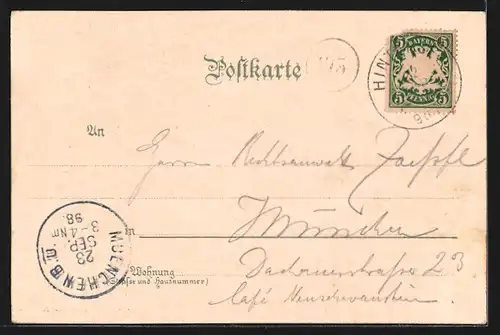 BAYERN
5 5
5 PFENNIG 5
HIN
Postkarte
An
Herrn Rechtsanwalt
in München
MUENCHEN B. II.
23
SEP.
3-4 Nm
98.
Wohnung
(Strasse und Hausnummer)
Dachauerstrasse 23.
Café